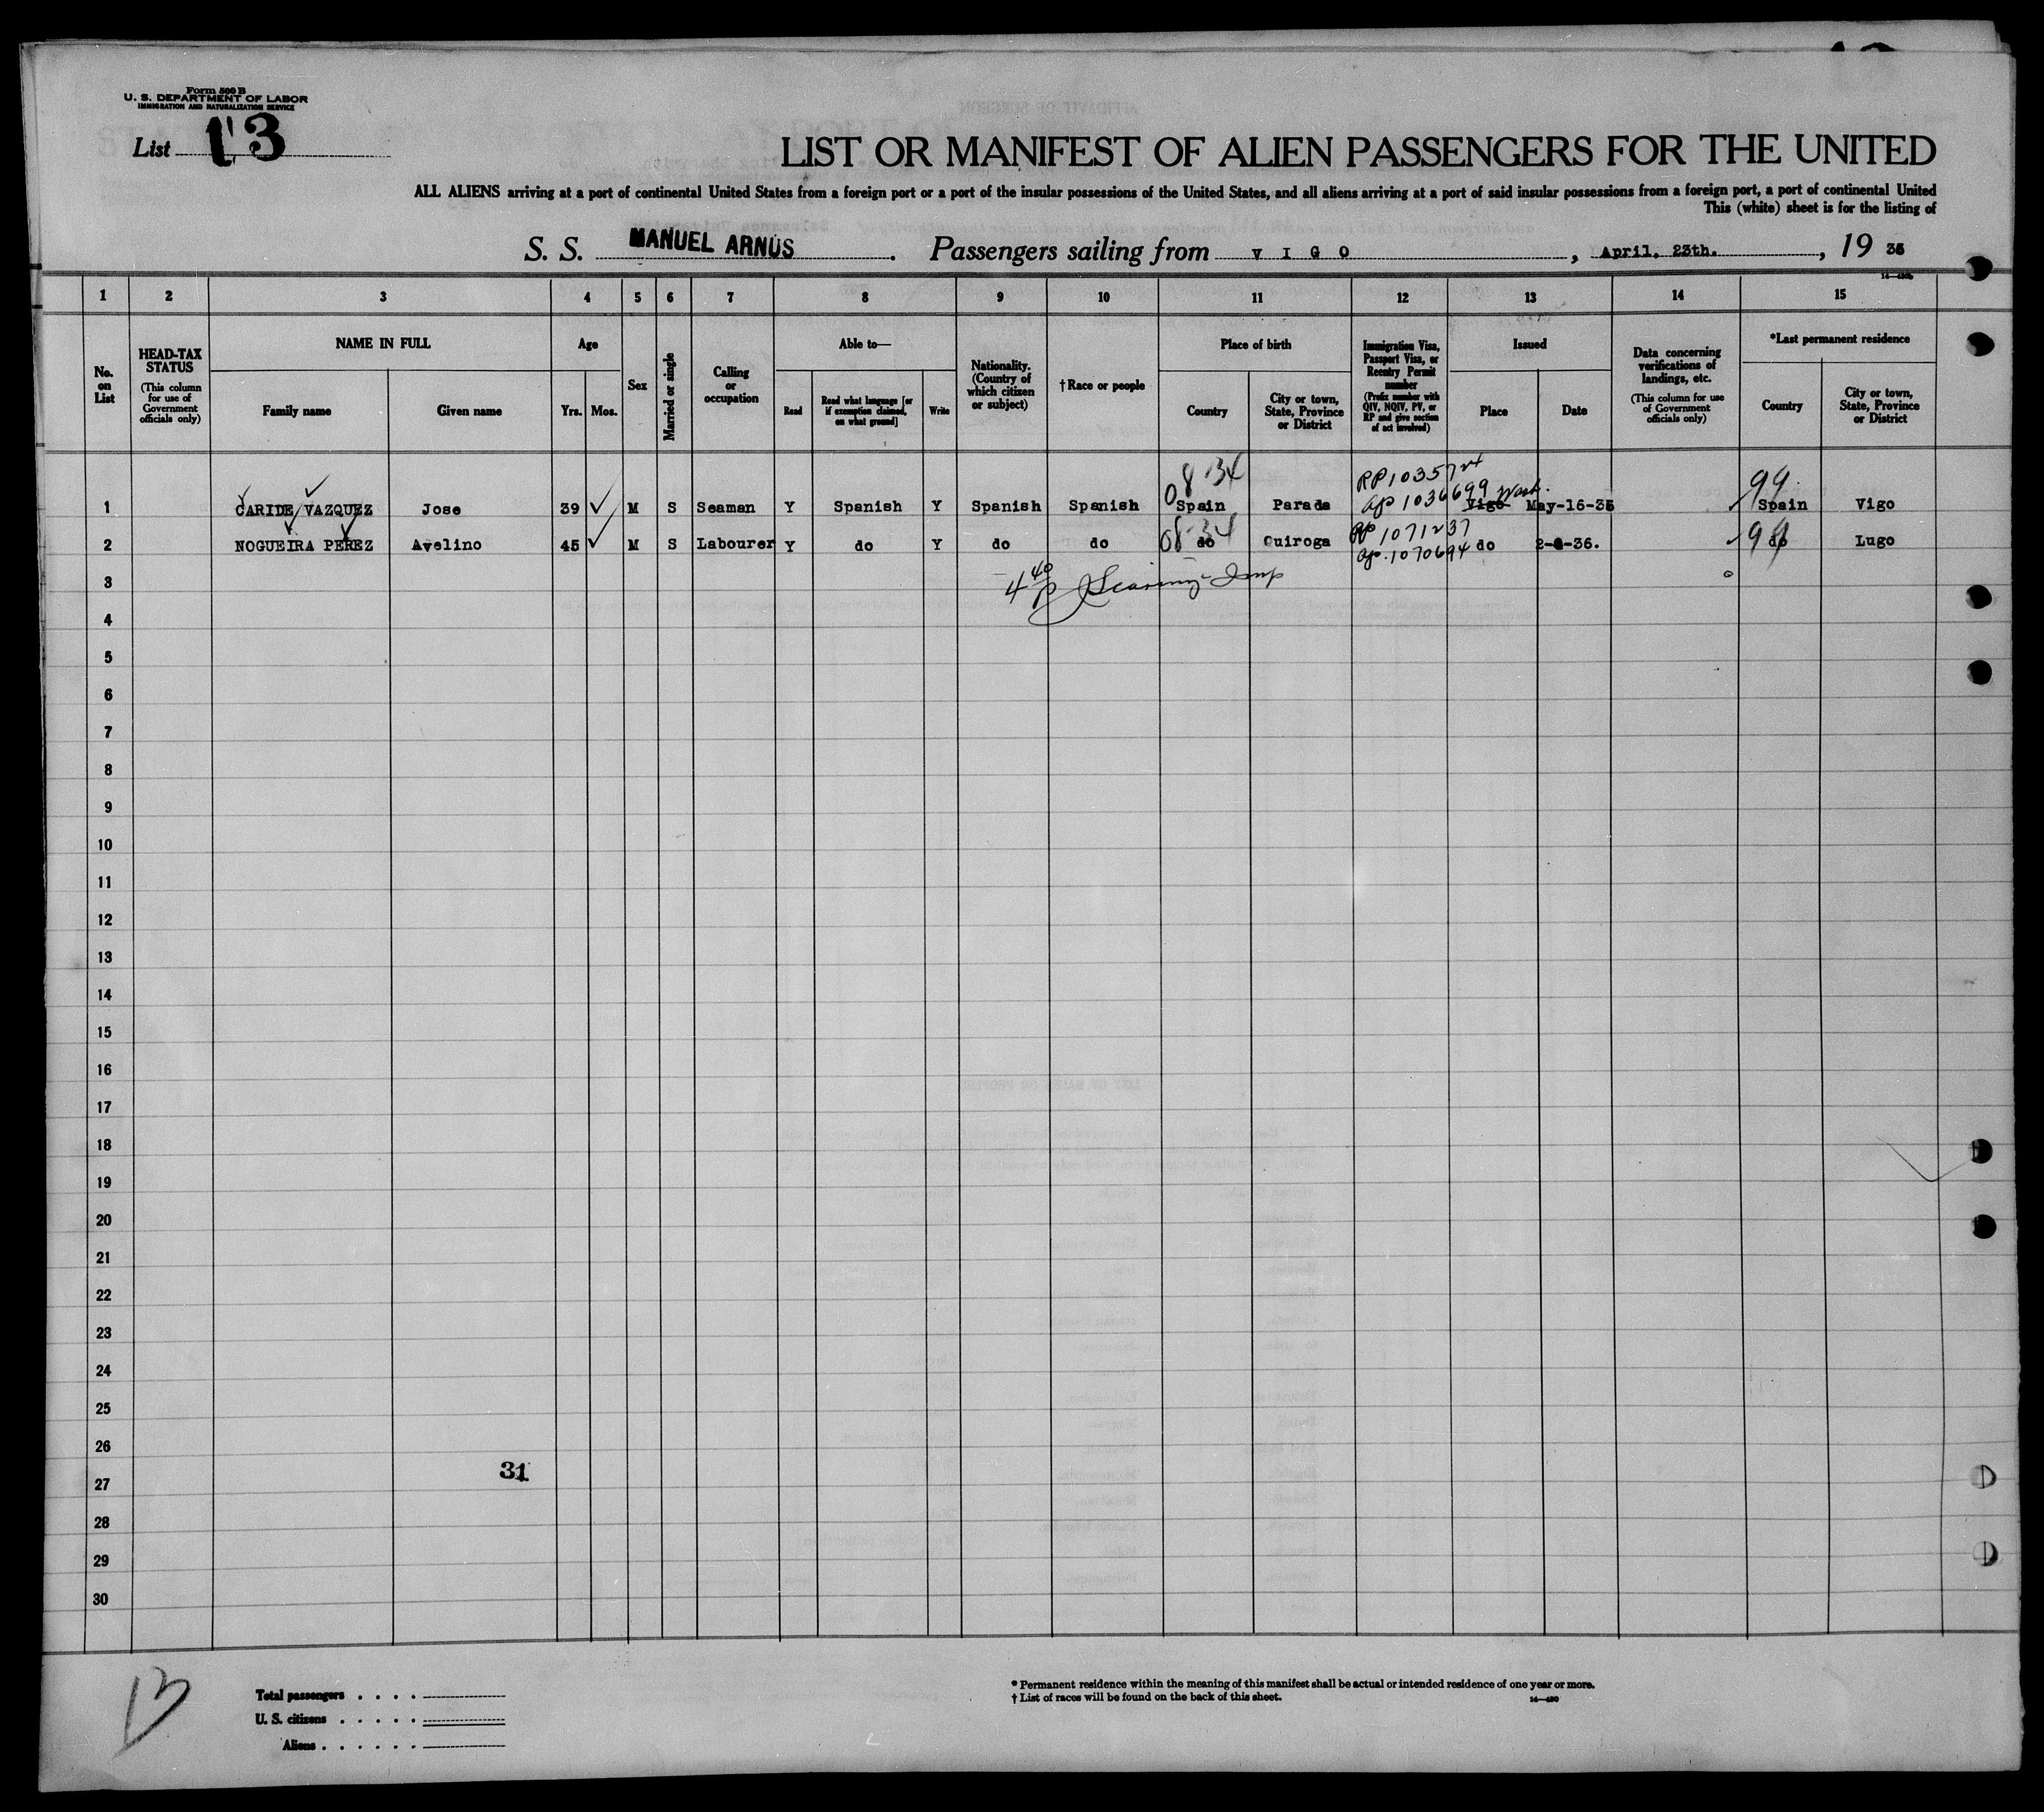 Form 500 B
U. S. DEPARTMENT OF LABOR
IMMIGRATION AND NATURALIZATION SERVICE
List 13
LIST OR MANIFEST OF ALIEN PASSENGERS FOR THE UNITED
ALL ALIENS arriving at a port of continental United States from a foreign port or a port of the insular possessions of the United States, and all aliens arriving at a port of said insular possessions from a foreign port, a port of continental United
This (white) sheet is for the listing of
S. S. MANUEL ARNUS. Passengers sailing from VIGO, April, 23th., 19 36
14—430b
1 2 3 4 5 6 7 8 9 10 11 12 13 14 15
No. on List
HEAD-TAX STATUS
(This column for use of Government officials only)
NAME IN FULL
Family name
Given name
Age
Yrs.
Mos.
Sex
Married or single
Calling or occupation
Able to—
Read
Read what language [or if exemption claimed, on what ground]
Write
Nationality. (Country of which citizen or subject)
† Race or people
Place of birth
Country
City or town, State, Province or District
Immigration Visa, Passport Visa, or Reentry Permit number
(Prefix number with QIV, NQIV, PV, or RP and give section of act involved)
Issued
Place
Date
Data concerning verifications of landings, etc.
(This column for use of Government officials only)
*Last permanent residence
Country
City or town, State, Province or District
08-34 RP 1035724 99
1 CARIDE VAZQUEZ Jose 39 M S Seaman Y Spanish Y Spanish Spanish Spain Parada ap 1036699 Wash. Vigo May-16-35 Spain Vigo
08-34 RP 1071237 99
2 NOGUEIRA PEREZ Avelino 45 M S Labourer Y do Y do do do Quiroga ap. 1070694 do 2-8-36. do Lugo
3
4
5
6
7
8
9
10
11
12
13
14
15
16
17
18
19
20
21
22
23
24
25
26
31
27
28
29
30
13
Total passengers . . . .
U. S. citizens . . . . .
Aliens . . . . . .
* Permanent residence within the meaning of this manifest shall be actual or intended residence of one year or more.
† List of races will be found on the back of this sheet.
14—430